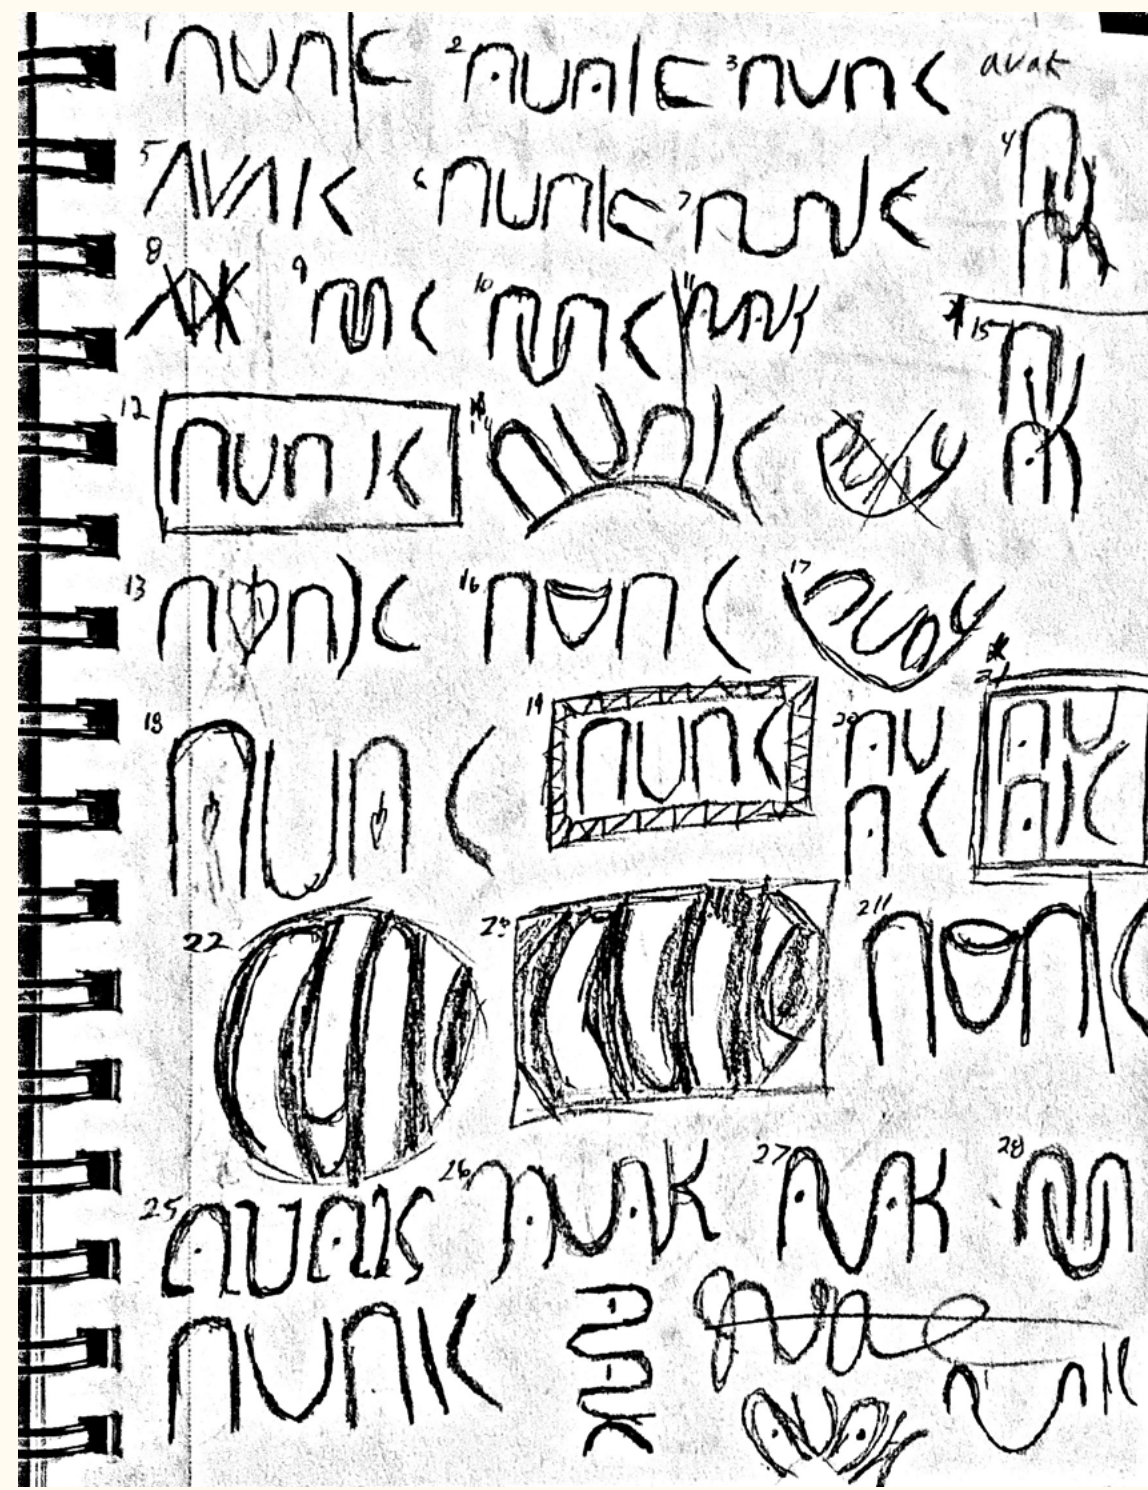 1 AVAK 2 AVAK 3 AVAK avak
4 AVAK
5 AVAK 6 AVAK 7 AVAK
8 9 AVAK 10 AVAK 11 AVAK
15 AVAK
12 AVAK 14 AVAK
13 AVAK 16 AVAK 17 AVAK
18 AVAK 19 AVAK 20 AV
AK
21 AV
AK
22 AVAK 23 AVAK 24 AVAK
25 AVAK 26 AVAK 27 AVAK 28
AVAK AVAK AVAK